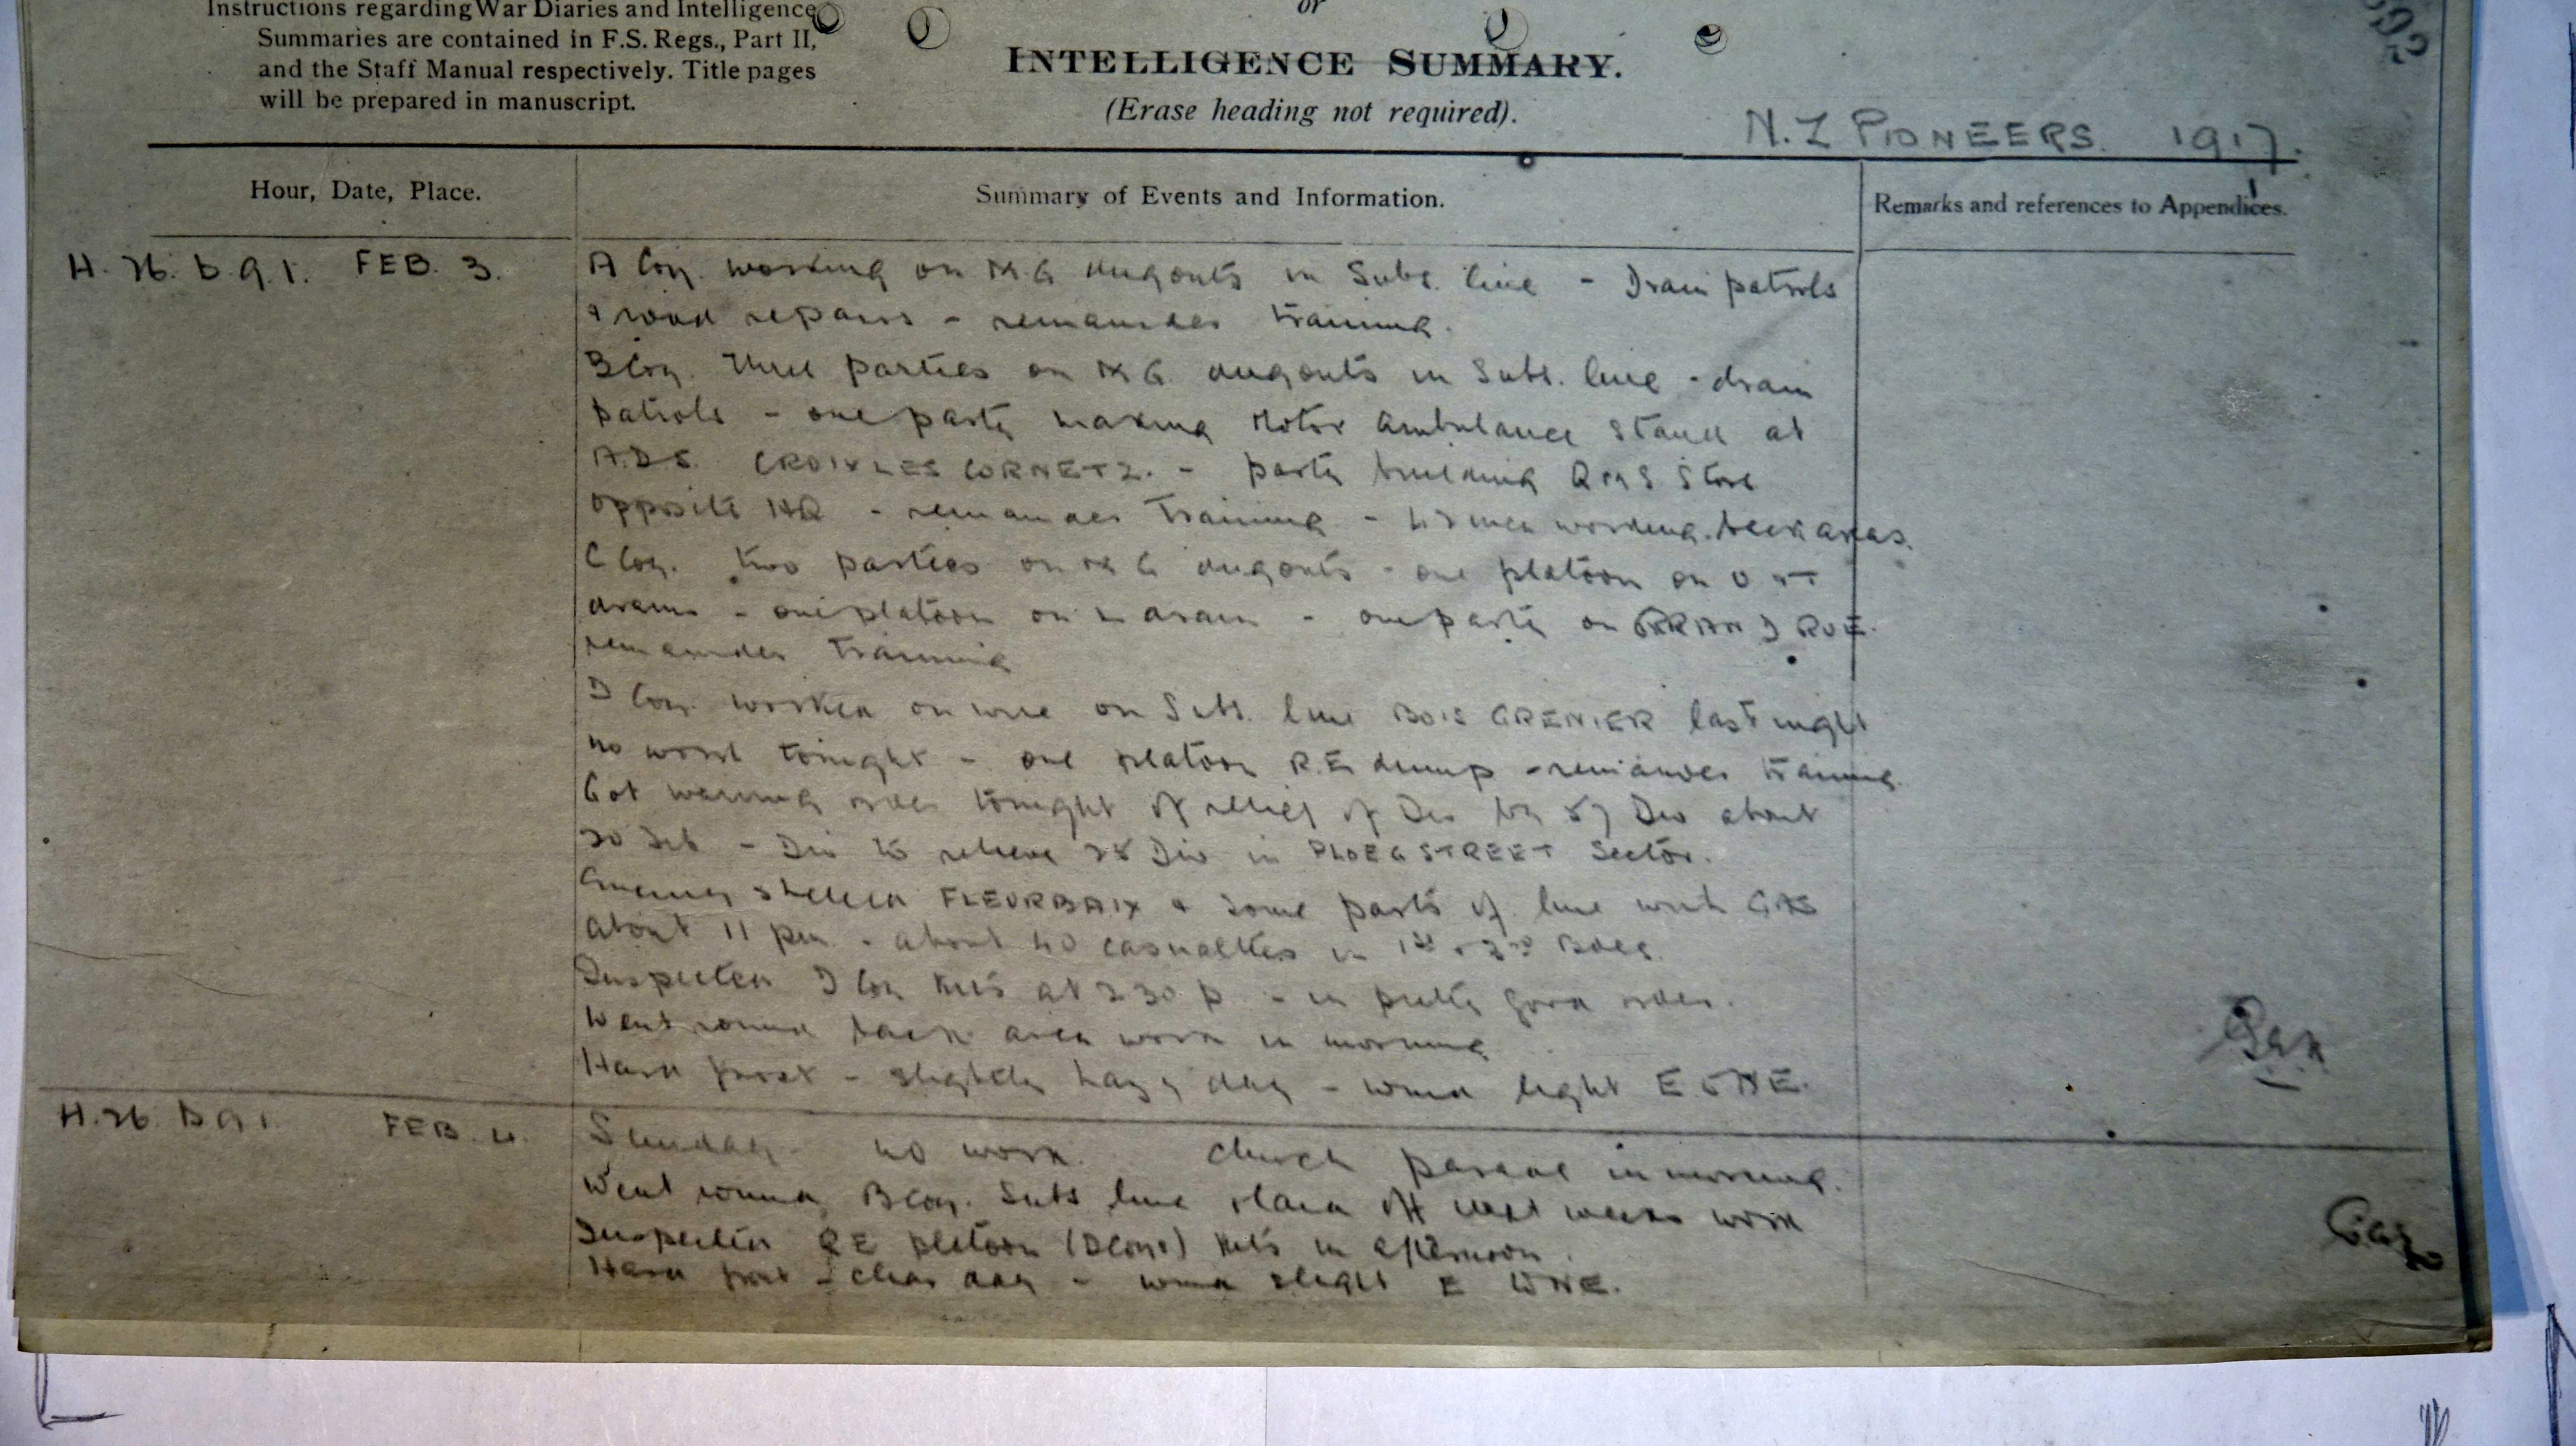 Instructions regarding War Diaries and Intelligence
Summaries are contained in F.S. Regs., Part II,
and the Staff Manual respectively. Title pages
will be prepared in manuscript.
or
INTELLIGENCE SUMMARY.
(Erase heading not required).
N.Z PIONEERS. 1917.
Hour, Date, Place.
Summary of Events and Information.
Remarks and references to Appendices.
H. 26. b. 9. 1. FEB. 3.
A Coy. working on M.G dugouts in Subs. line - Drain patrols
& road repairs - remainder training.
B Coy. three parties on M G. dugouts in Subs. line - drain
patrols - one party making Motor Ambulance stand at
A.D.S. CROIX LES CORNETZ. - party building QMS Store
opposite HQ - remainder training - men working back areas.
C Coy. two parties on M G dugouts - one platoon on
drains - one platoon on drain - one party on RUE.
remainder training
D Coy. worked on wire on Subs. line BOIS GRENIER last night
no work tonight - one platoon R.E. dump - remainder training.
Got warning order tonight of relief of Div by 57 Div about
20 Feb - Div to relieve 25 Div in PLOEGSTREET Sector.
Enemy shelled FLEURBAIX & some parts of line with GAS
about 11 pm. - about 40 casualties in 1st & Bdes.
Inspected D Coy kits at 2 30 p. - in pretty good order.
Went round back area work in morning
Hard frost - slightly hazy day - wind light E to NE.
H. 26. B 9 1. FEB. 4.
Sunday - no work. Church parade in morning.
Went round B Coy. Subs line & laid off next weeks work
Inspected RE platoon (D Coy's) kits in afternoon.
Hard frost - clear day - wind slight E to NE.